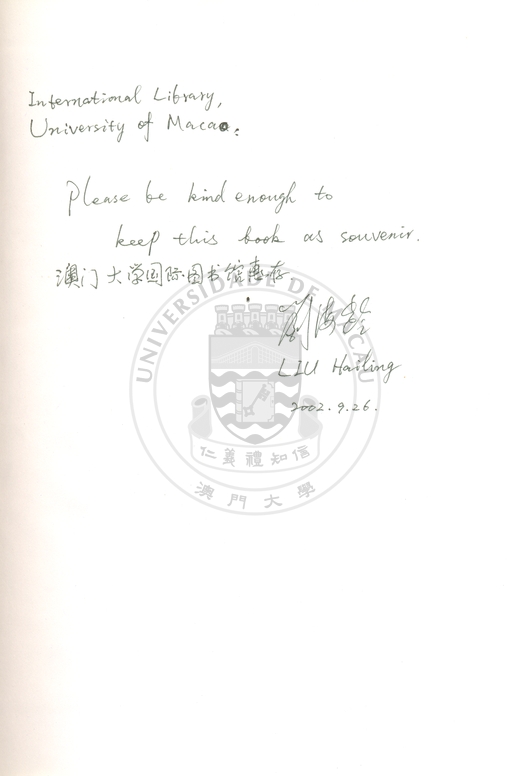 International Library,
University of Macao.
Please be kind enough to
keep this book as souvenir.
澳门大学国际图书馆惠存
刘海龄
LIU Hailing
2002.9.26.
UNIVERSIDADE DE MACAU
仁義禮知信
澳門大學